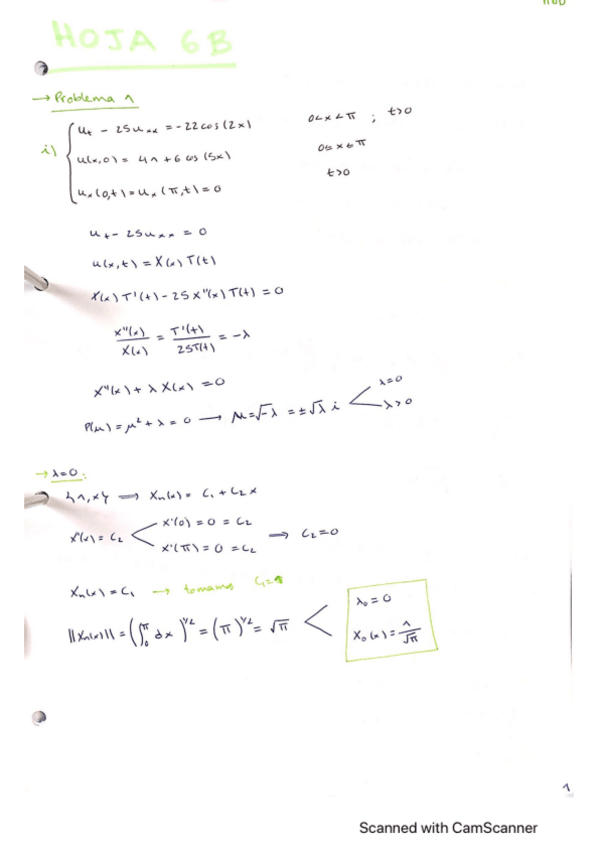 HOJA 6B
→ Problema 1
i) { u_t - 25u_xx = -22cos(2x)    0<x<π ; t>0
u(x,0) = 41+6cos(5x)    0≤x≤π
u_x(0,t) = u_x(π,t) = 0    t>0
u_t - 25u_xx = 0
u(x,t) = X(x)T(t)
X(x)T'(t) - 25X''(x)T(t) = 0
X''(x)/X(x) = T'(t)/25T(t) = -λ
X''(x) + λX(x) = 0
P(μ) = μ² + λ = 0 → μ = √-λ = ±√λ i < λ=0
λ>0
→ λ=0:
{1,x} → Xn(x) = C₁ + C₂x
X'(x) = C₂ < X'(0) = 0 = C₂
X'(π) = 0 = C₂ → C₂ = 0
Xn(x) = C₁ → tomamos C₁=1
||Xn(x)|| = (∫₀^π dx)^1/2 = (π)^1/2 = √π < λ₀ = 0
X₀(x) = 1/√π
1
Scanned with CamScanner